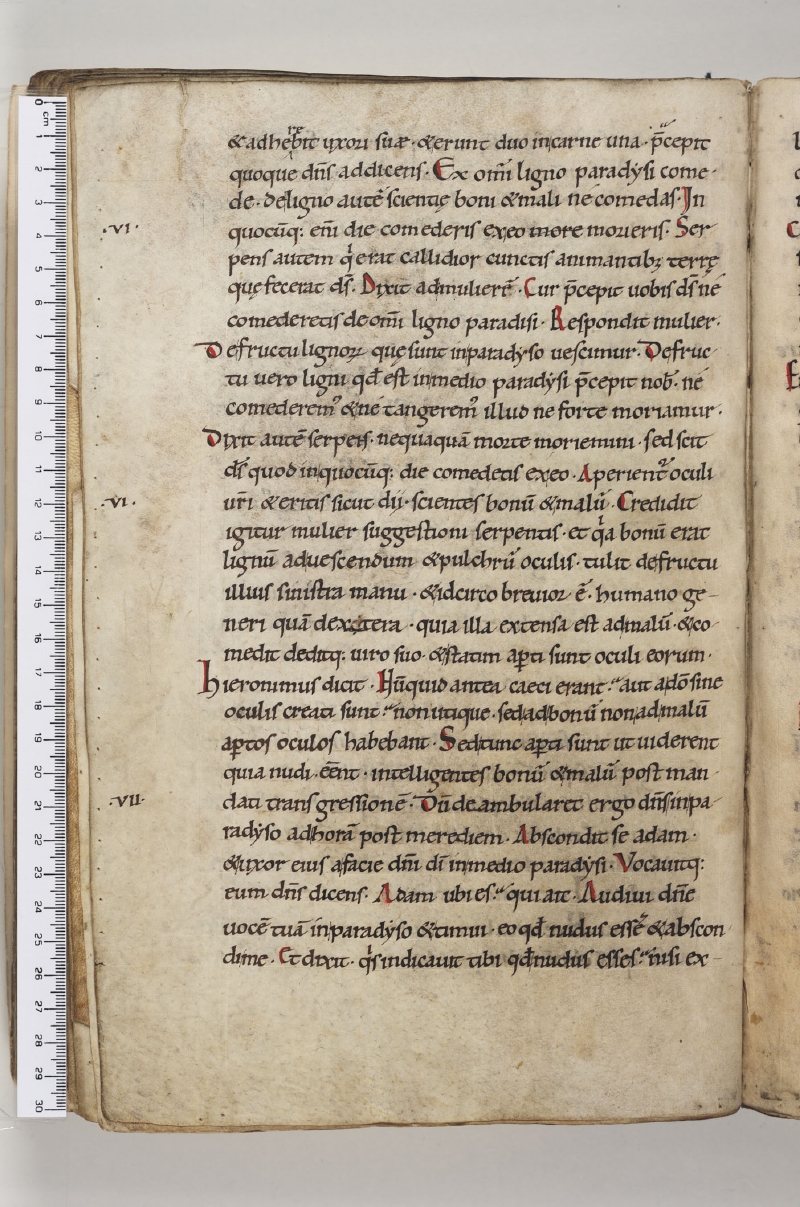 &adhebit uxori suæ · &erunt duo incarne una · p̄cepit
quoque dn̄s addicens · Ex om̄i ligno paradẏsi come
de · deligno autē scientię boni &mali ne comedas · In
·VI· quocūq; eni die comederis exeo more morieris · Ser
pens autem qi erat callidior cunctis animantibꝫ terrę
que fecerat dš · Dixit admulierē · Cur p̄cepit uobis dš ne
comederetis de om̄i ligno paradisi · Respondit mulier ·
Defructu lignoꝝ que sunt inparadẏso uescimur · Defruc
tu uero ligni qđ est inmedio paradẏsi p̄cepit nob̄ · ne
comederemꝰ &ne tangeremꝰ illud ne forte moriamur ·
Dixit autē serpens · nequaquā morte moriemini · sed scit
dš quod inquocūq; die comedetis exeo · Aperient̉ oculi
·VI· ur̄i &eritis sicut dii · scientes bonū &malū · Credidit
igitur mulier suggestioni serpentis · et qa bonū erat
lignū aduescendum &pulchrū oculis · tulit defructu
illius sinistra manu · &idcirco breuior ē · humano ge-
neri quā dextera · quia illa extensa est admalū · &co
medit deditq; uiro suo · &statim apti sunt oculi eorum ·
hieronimus dicit · Nūquid antea caeci erant · aut adō sine
oculis creati sunt · non utique · sed adbonū non admalū
aptos oculos habebant · Sed tunc apti sunt ut uiderent
quia nudi · eēnt · intelligentes bonū &malū post man
·VII· dati transgressionē · Dū deambularet ergo dn̄s inpa
radẏso adhorā post merediem · Abscondit se adam ·
&uxor eius afacie dn̄i dī inmedio paradẏsi · Vocauitq;
eum dn̄s dicens · Adam ubi es · qui ait · Audiui dn̄e
uocē tuā inparadẏso &timui · eo qđ nudus essē &abscon
dime · Et dixit · qis indicauit tibi qđ nudus esses · nisi ex-